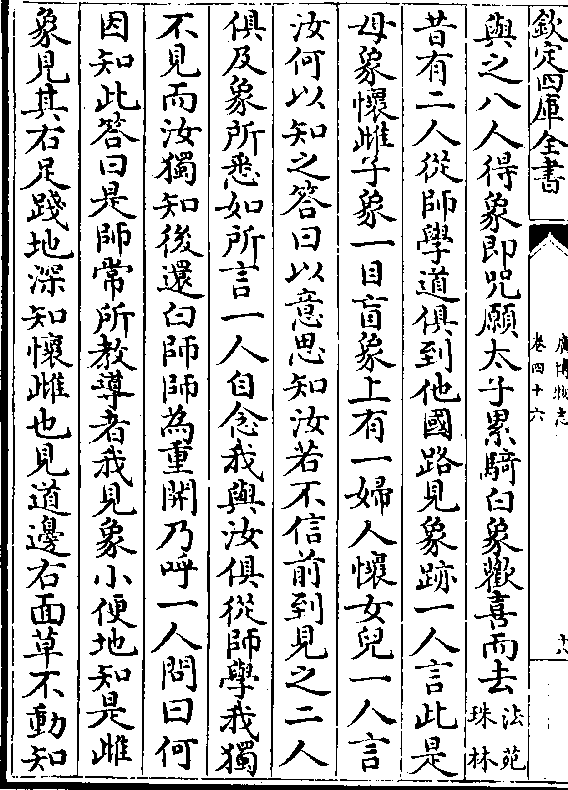 欽定四庫全書
廣博物志
卷四十六
十八
與之八人得象即咒願太子累騎白象歡喜而去法苑珠林
昔有二人從師學道俱到他國路見象跡一人言此是
母象懷雌子象一目盲象上有一婦人懷女兒一人言
汝何以知之答曰以意思知汝若不信前到見之二人
俱及象所悉如所言一人自念我與汝俱從師學我獨
不見而汝獨知後還白師師為重開乃呼一人問曰何
因知此答曰是師常所教導者我見象小便地知是雌
象見其右足踐地深知懷雌也見道邊右面草不動知